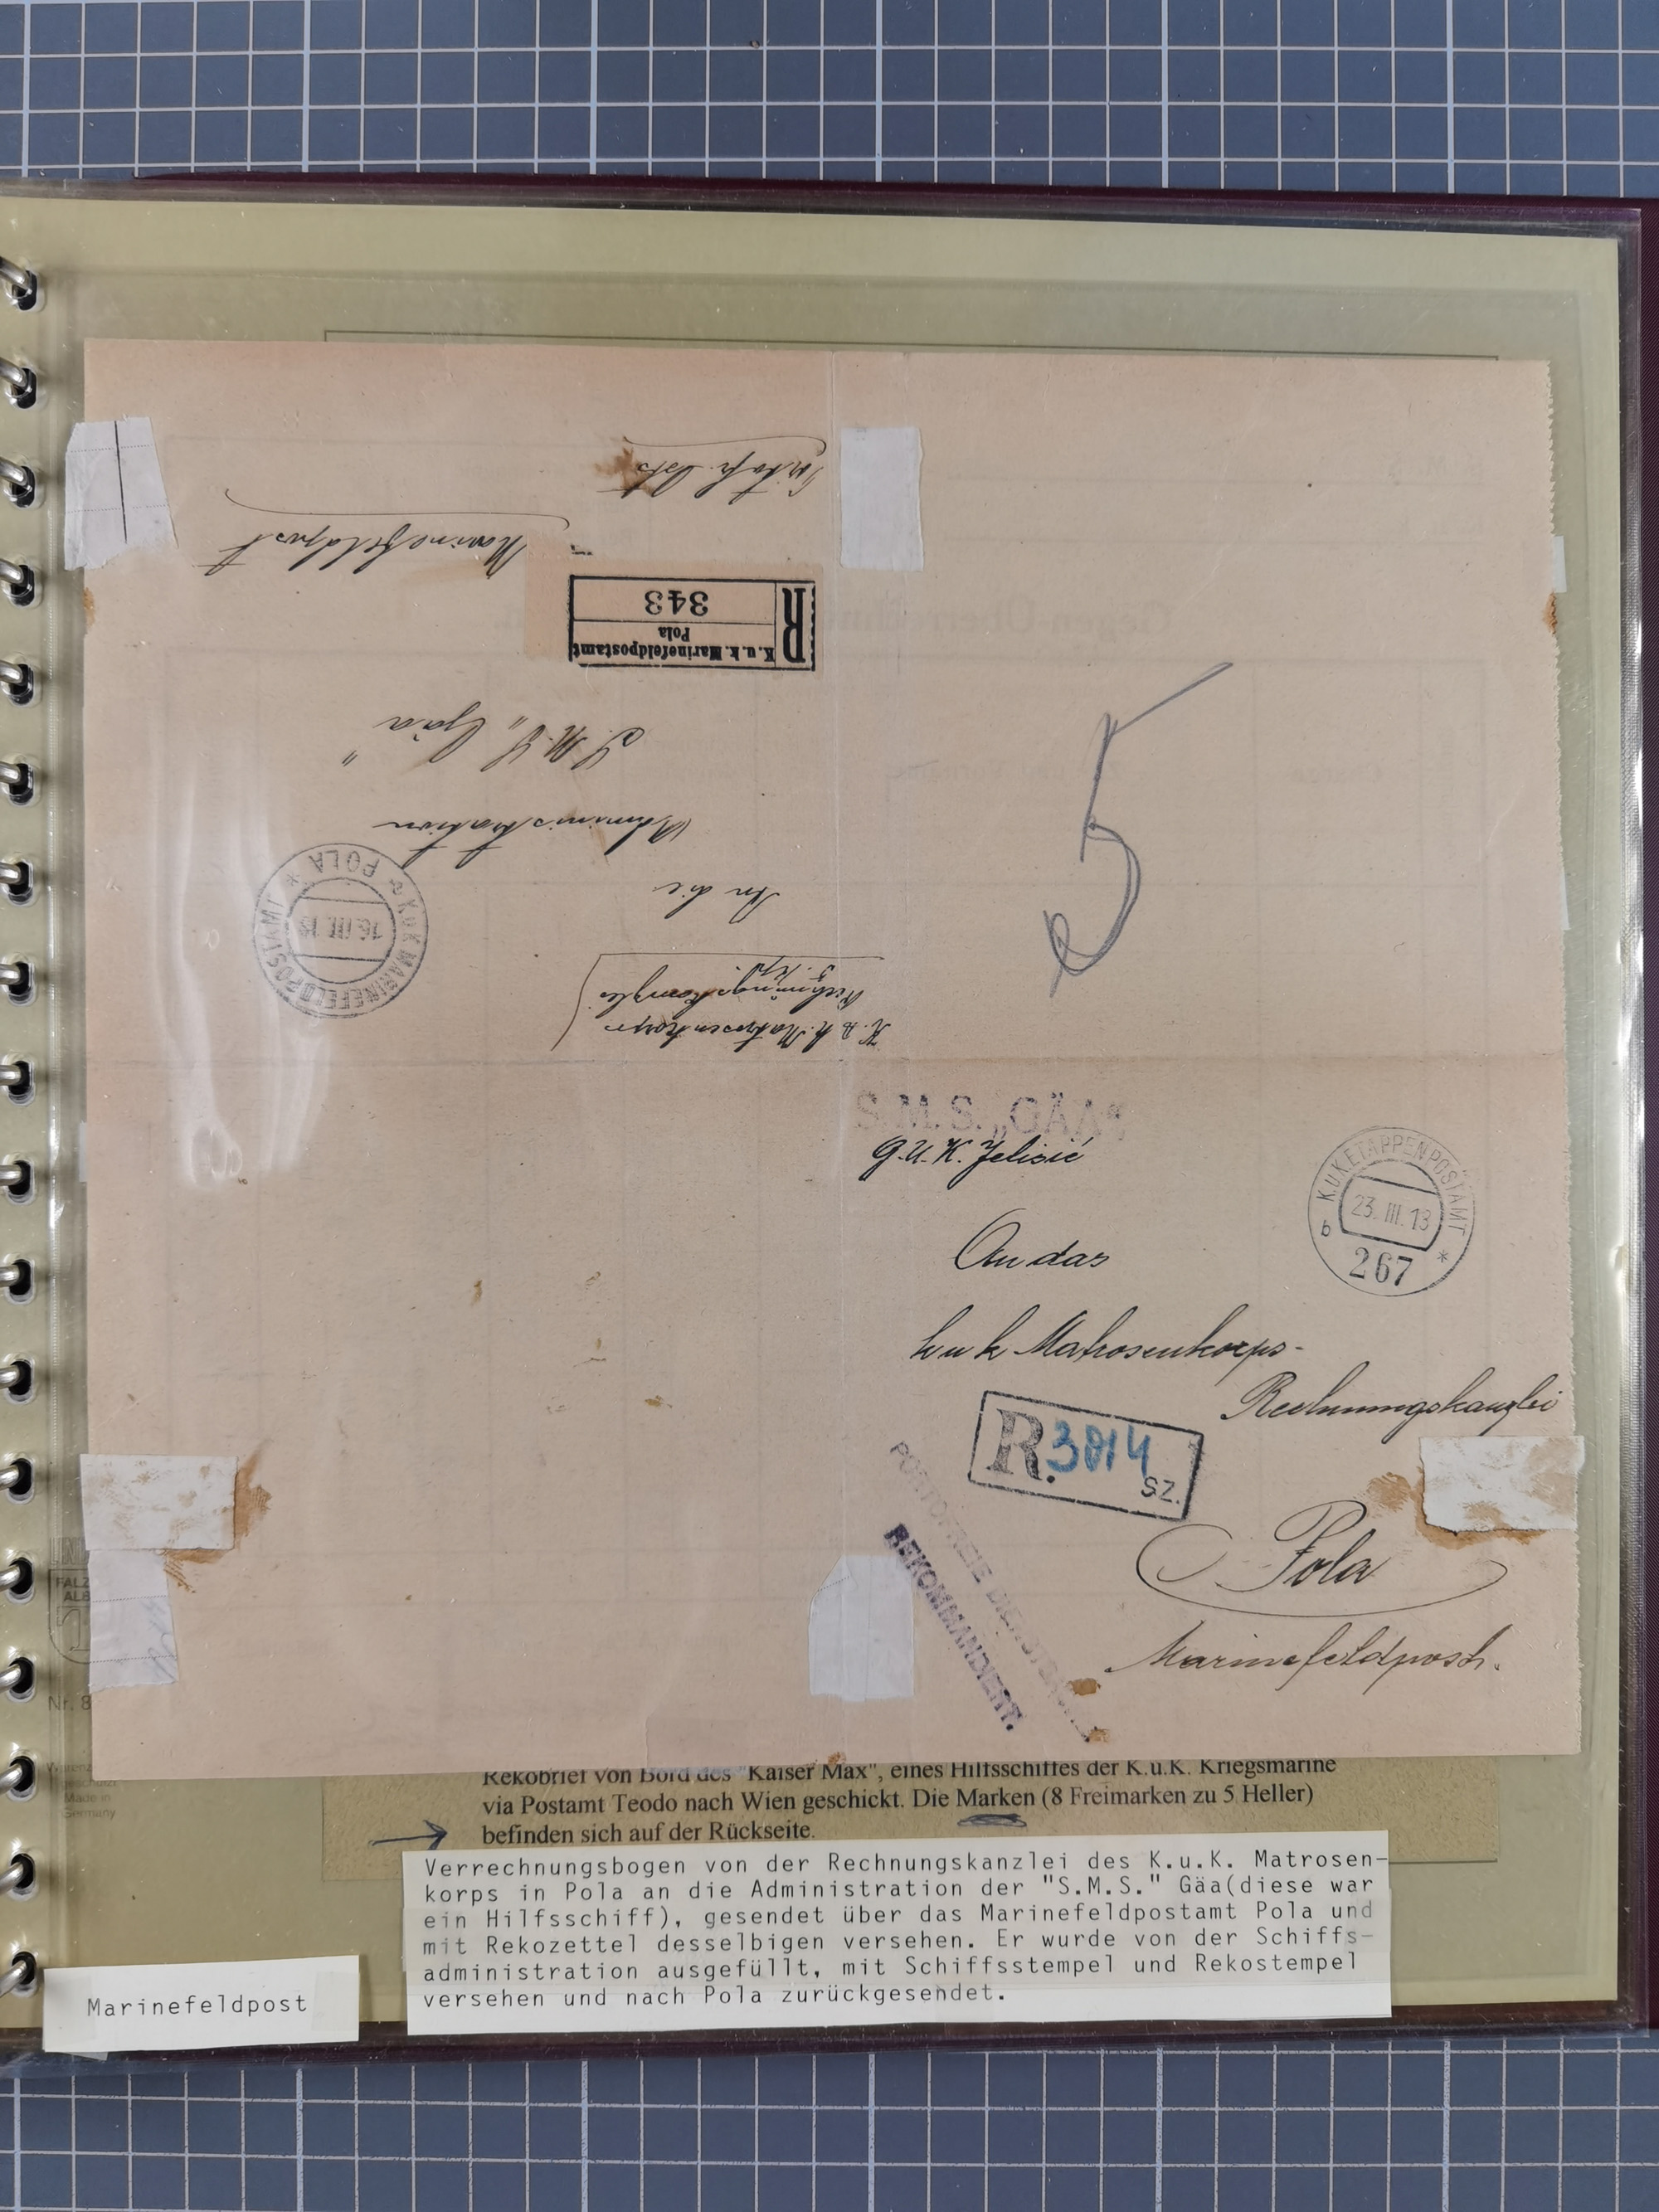 Marinefeldpost
K.u.k. Marinefeldpostamt
Pola
R
343
S. M. S. „Gäa"
Administration
An die
K. u. k. Matrosenkorps
Rechnungskanzlei
K.u.K. MARINEFELDPOSTAMT
* POLA *
a
16.III.18
5
S.M.S. „GÄA"
G.U.K. Jelisić
K.U.K. ETAPPENPOSTAMT
b
23.III.18
*
267
An das
k u k Matrosenkorps-
Rechnungskanzlei
R. 3014
SZ.
Pola
Marinefeldpost.
PORTOFREIE DIENSTSACHE
REKOMMANDIERT.
FALZ
ALB
Nr. 8
Made in
Germany
Rekobrief von Bord des "Kaiser Max", eines Hilfsschiffes der K.u.K. Kriegsmarine
via Postamt Teodo nach Wien geschickt. Die Marken (8 Freimarken zu 5 Heller)
befinden sich auf der Rückseite.
Verrechnungsbogen von der Rechnungskanzlei des K.u.K. Matrosen-
korps in Pola an die Administration der "S.M.S." Gäa(diese war
ein Hilfsschiff), gesendet über das Marinefeldpostamt Pola und
mit Rekozettel desselbigen versehen. Er wurde von der Schiffs-
administration ausgefüllt, mit Schiffsstempel und Rekostempel
versehen und nach Pola zurückgesendet.
Marinefeldpost